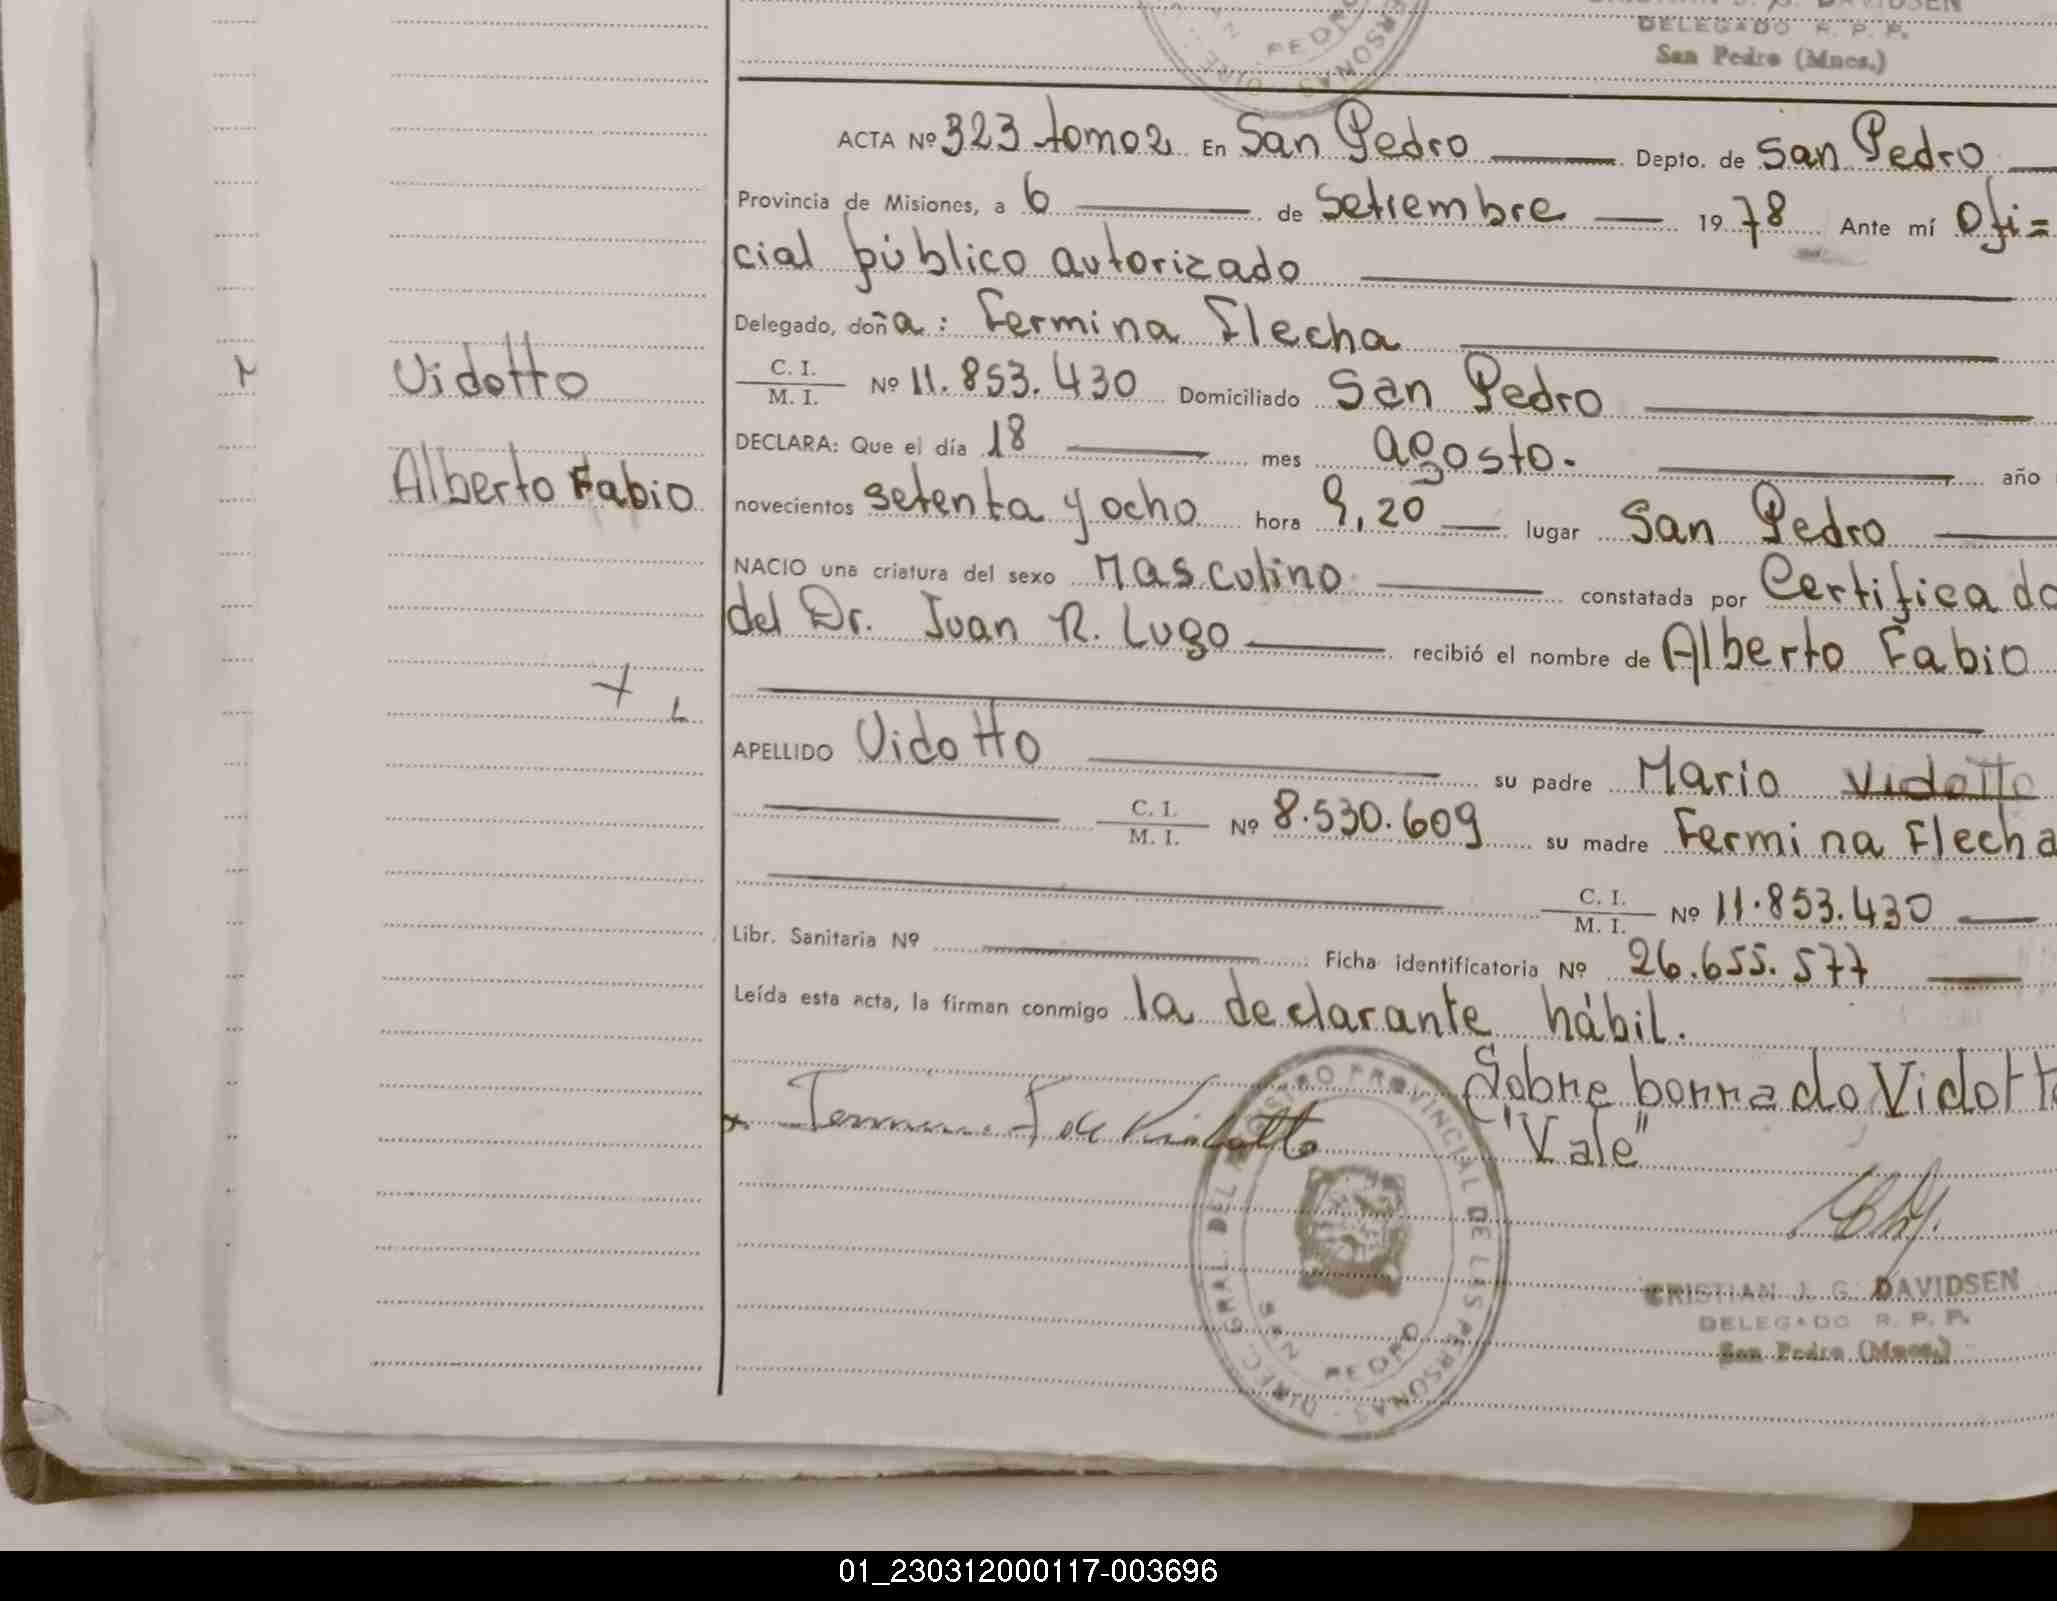 DELEGADO R. P. P.
San Pedro (Mnes.)
ACTA Nº 323 tomo 2 En San Pedro Depto. de San Pedro
Provincia de Misiones, a 6 de Setiembre 1978 Ante mí Ofi=
cial público autorizado
Delegado, doña: Fermina Flecha
C. I.
M. I. Nº 11.853.430 Domiciliado San Pedro
DECLARA: Que el día 18 mes agosto. año
novecientos setenta y ocho hora 9,20 lugar San Pedro
NACIO una criatura del sexo Masculino constatada por Certificado
del Dr. Juan R. Lugo recibió el nombre de Alberto Fabio
APELLIDO Vidotto su padre Mario Vidotto
C. I.
M. I. Nº 8.530.609 su madre Fermina Flecha
C. I.
M. I. Nº 11.853.430
Libr. Sanitaria Nº Ficha identificatoria Nº 26.655.577
Leída esta acta, la firman conmigo la declarante hábil.
Sobre borrado Vidotto
"Vale"
Vidotto
Alberto Fabio
DIREC. GRAL. DEL REGISTRO PROVINCIAL DE LAS PERSONAS
SAN PEDRO
CRISTIAN J. G. DAVIDSEN
DELEGADO R. P. P.
San Pedro (Mnes.)
01_230312000117-003696